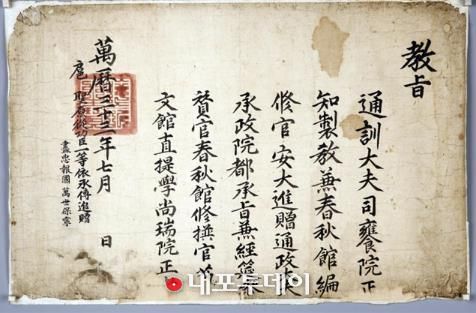 教旨
通訓大夫司饔院正
知製教兼春秋館編
修官安大進贈通政大夫
承政院都承旨兼經筵參
贊官春秋館修撰官藝
文館直提學尚瑞院正
萬曆三十三年七月 日
扈聖原從功臣一等依承傳追贈
盡忠報國 萬世保寧
내포투데이